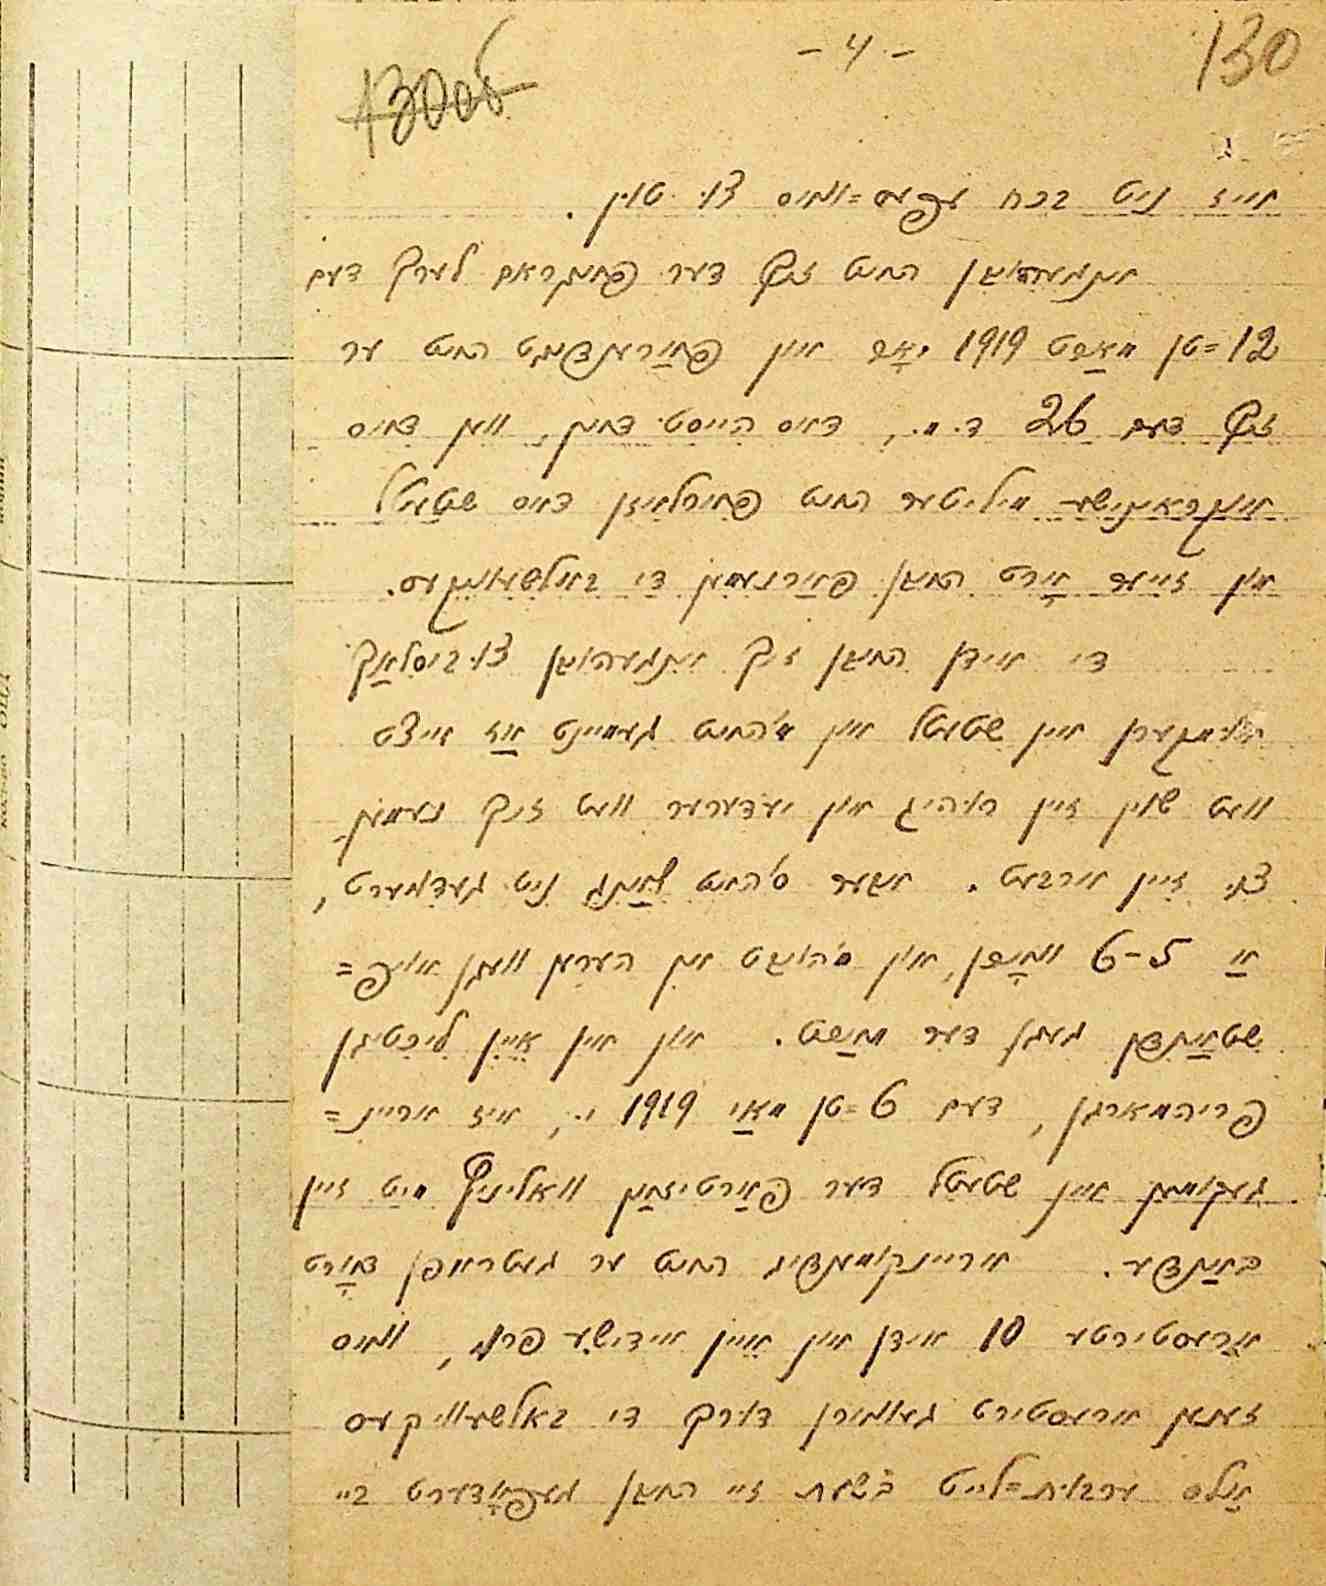 - 4 -
130
130об
איז ניט בכח עפעס=וואס צו טון.
אנגעהויבן האט זיך דער פאגראם לערך דעם
12=טן מאַרט 1919 יאָר און פאַרענדיקט האט ער
זיך דעם 26 ד. מ., דאס הייסט דאן, ווען דאס
אוקראאינישע מיליטער האט פארלאזן דאס שטעטל
און זייער אָרט האבן פאַרנומען די באלשעוויקעס.
די אידן האבן זיך אנגעהויבן צו ביסלאַך
אומקערן אין שטעטל און מ'האט געמיינט אַז איצט
וועט שוין זיין רוהיג און יעדערער וועט זיך נעמען
צו זיין ארבעט. אבער ס'האט לאַנג ניט געדויערט,
אַ 5-6 וואָכן, און מ'הויבט אן הערן וועגן אויפ=
שטאַנדן געגן דער מאַכט. און אין איין ליכטיגן
פריהמארגן, דעם 6=טן מאַי 1919 י., איז אריינ=
געקומען אין שטעטל דער פאַרטיזאַן וואליניץ מיט זיין
באַנדע. אריינקומענדיג האט ער געטראפן דאָרט
אַרעסטירטע 10 אידן און איין אידישע פרוי, וואס
זענען ארעסטירט געווארן דורך די באלשעוויקעס
אַלס ערבות=לייט בשעת זיי האבן געפאָדערט ביי